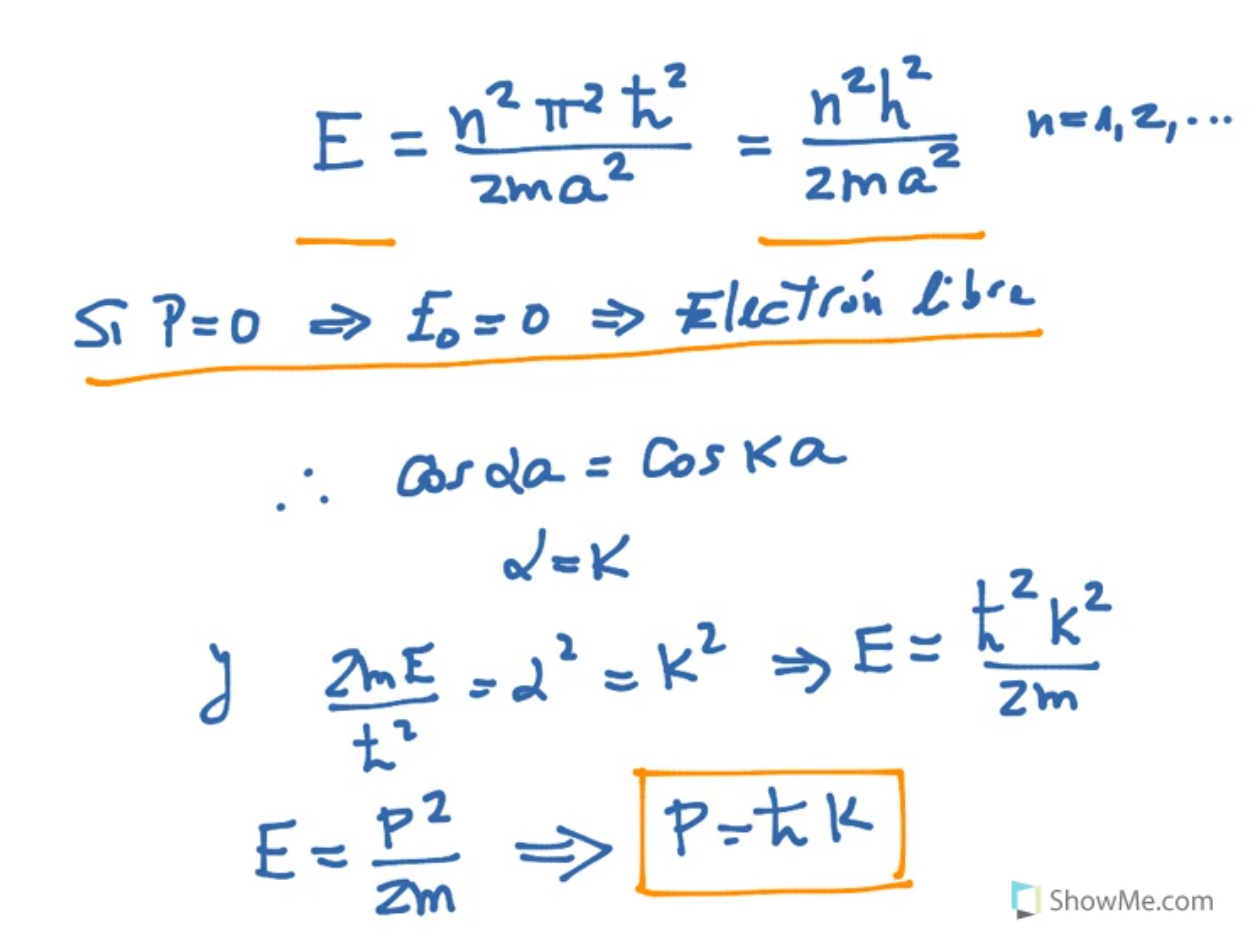 E = n² π² ħ² / 2ma² = n²h² / 2ma² n=1,2,...
Si P=0 ⇒ E₀=0 ⇒ Electrón libre
∴ Cos αa = Cos Ka
α=K
y 2mE / ħ² = α² = K² ⇒ E = ħ² k² / 2m
E = P² / 2m ⇒ P=ħ K
ShowMe.com